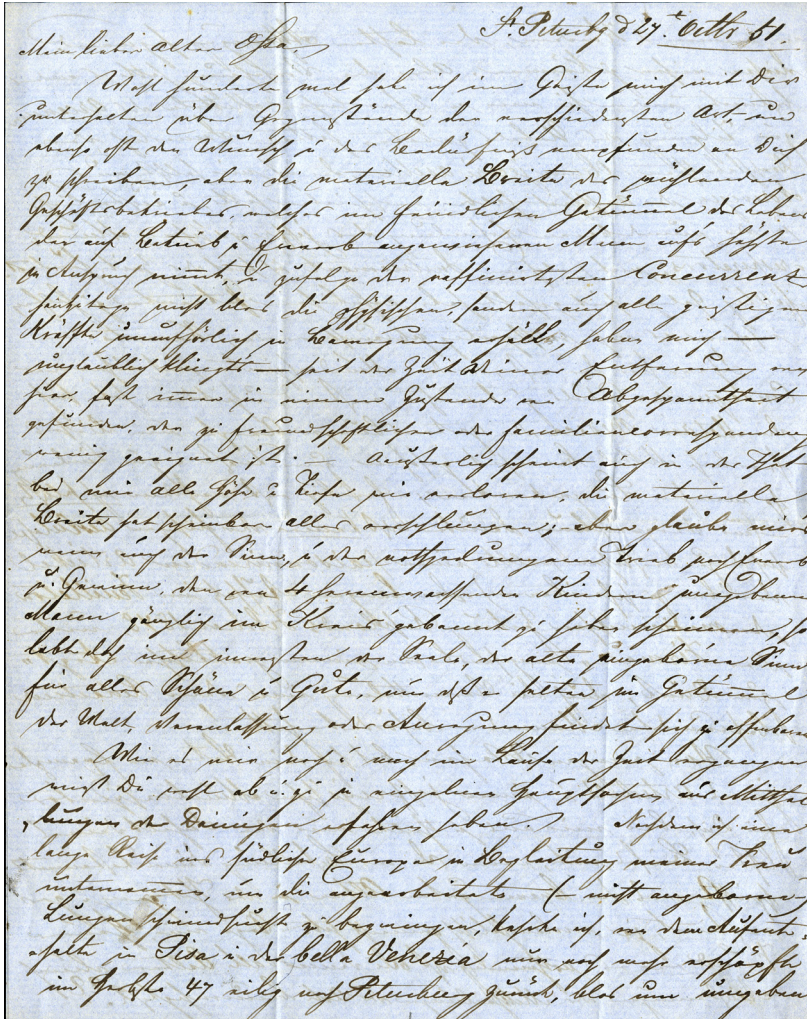 St. Petersbg d 27t. Octbr 51.
Mein lieber alter
Wohl hunderte mal habe ich im Geiste mich mit Dir
unterhalten über Gegenstände der verschiedensten Art, und
ebenso oft den Wunsch u das Bedürfniß empfunden an Dich
zu schreiben, aber die materielle Breite des wühlenden
Geschäftsbetriebes, welches im feindlichen Getümmel des Lebens
den auf Betrieb u Erwerb angewiesenen Mann aufs höchste
in Anspruch nimmt, u zufolge der raffinirtesten Concurrenz
heutzutage nicht blos die physischen, sondern auch alle geistigen
Kräfte unaufhörlich in Bewegung erhält, haben mich —
unglaublich klingts — seit der Zeit Deiner Entfernung von
hier, fast immer in einem Zustande von Abgespanntheit
gefunden, der zu freundschaftlichen oder
wenig geeignet ist. — Äusserlich scheint auch in der That
bei mir alle Höhe u Tiefe wie verloren, die materielle
Breite hat scheinbar alles verschlungen; aber glaube mir
wenn auch der Sinn, u der nothgedrungene Trieb nach Erwerb
u. Gewinn, den von 4 heranwachsenden Kindern umgebenen
Mann gänzlich im Kreis gebannt zu haben scheinen, so
lebt doch im innersten der Seele, der alte angeborne Sinn
für alles Schöne u Gute, nur daß er selten im Getümmel
der Welt, Veranlassung oder Anregung findet sich zu offenbaren
Wie es mir nach u nach im Laufe der Zeit ergangen
wirst Du wohl ab u. zu in einzelnen Hauptsachen aus Mitthei
lungen der Deinigen erfahren haben. Nachdem ich eine
lange Reise ins südliche Europa in Begleitung meiner Frau
unternommen, um die angearbeitete (— nicht angeborne —
Lungenschwindsucht zu bezwingen, kehrte ich, von dem Aufent-
halte in Pisa u der bella Venezia nur noch mehr erschöpft
im Herbste 47 eilig nach Petersburg zurück, blos um umgeben